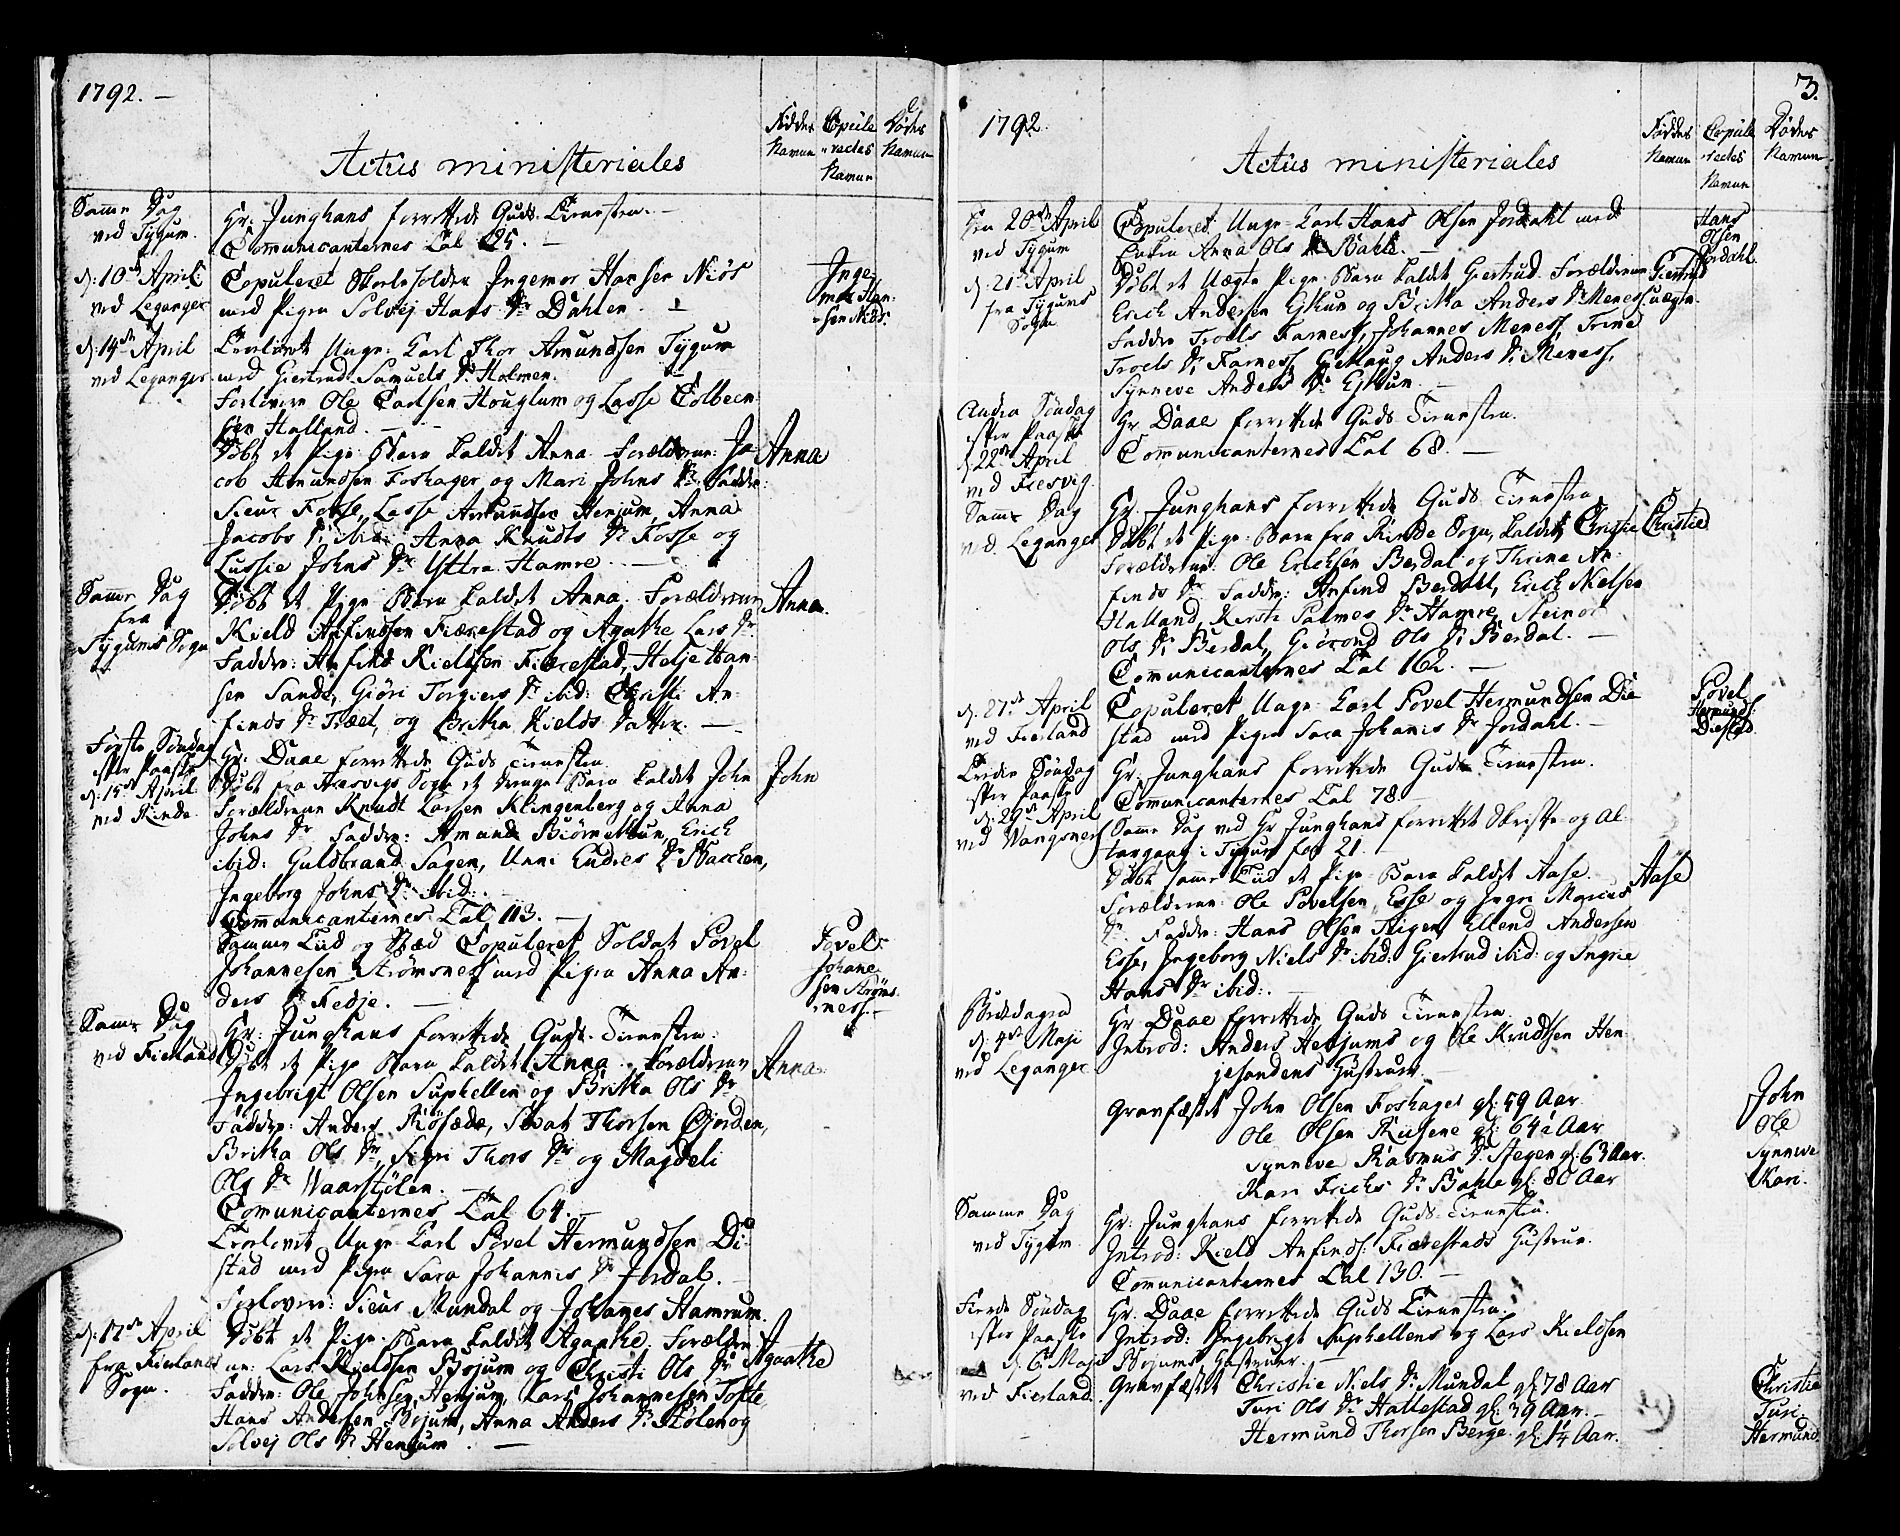 1792. —
Fødder Copule Døder
Namne -redes Namne
Namne
Actus ministeriales
Samme Dag
ved Tygum.
Hr: Junghans forrettede Guds Tienesten. —
Communicanternes Tal 125. —
d: 10de April
ved Leganger
Copuleret Skarlsolden Ingemor Hansen Niøs
med Pigen Solvej Hans Dr Dahlen. —
Inge-
mor Han-
sen Niøs.
d: 14de April
ved Leganger
Trolovet Unge Karl Thor Amundsen Tygum
med Giertrud Samuels Dr Holmen.
Forlovere Ole Carlsen Houglum og Lasse Colbeen-
sen Halland. —
Døbt et Pige Barn kaldet Anna Forældrene: Ja-
Anna
cob Amundsen Foshager og Mari Johns Dr Faddr:
Sieur Fosse, Lasse Amundsen Henjum, Anna
Jacobs Dr ibid: Anna Knudts Dr Fosse og
Lussie Johns Dr Yttre Hamre. —
Samme Dag
fra
Tygums Sogn
Døbt et Pige Barn kaldet Anna. Forældrene
Anna.
Kield Anfindsen Fierestad og Agathe Lars Dr
Faddre: Anfind Kieldsen Fierestad, Helje Han-
sen Sande, Giøri Torgiers Dr ibid: Christi An-
finds Dr Træet, og Britha Kields Datter. —
Første Søndag
efter Paaske
d: 15de April
ved Rinde.
Hr: Daae forrettede Guds Tienesten.
Døbt fra Hæsvigs Sogn et Drenge Barn kaldet John
John
Forældrene Knudt Larsen Klingenberg og Anna
Johns Dr Faddre: Amund Biørnetun, Erich
ibid: Guldbrand Sagen, Unni Endres Dr Bachen,
Ingeborg Johns Dr ibid:.
Communicanternes Tal 113. —
Samme Tid og Stæd Copuleret Soldat Povel
Povel
Johannesen Strømsness med Pigen Anna An-
Johane-
sen Strøms-
ness. —
ders Dr Fedje. —
Samme Dag
ved Fierland
Hr: Junghans forrettede Guds Tienesten.
Døbt et Pige Barn kaldet Anna. Forældrene
Anna
Ingebrigt Olsen Suphellen og Britha Ols Dr
Faddre: Anders Røsæde, Sivat Thorsen Gjorden,
Britha Ols Dr, Sigri Thors Dr og Magdeli
Ols Dr Waarstølen. —
Communicanternes Tal 64. —
Trolovet Unge Karl Povel Hermundsen Di-
stad med Pigen Sara Johannis Dr Jordal. —
Forlovere: Sieur Mundal og Johannes Hamrum.
d: 17de April
fra Fierlands
Sogn.
Døbt et Pige Barn kaldet Agaathe, Forældre-
Agaathe
ne: Lars Kieldsen Bojum og Christi Ols Dr
Faddre: Ole Johnsen Henjum, Lars Johannesen Tofte,
Hans Andersen Bojum, Anna Anders Dr Stølen og
Solvej Ols Dr Henjum. —
3.
1792.
Fødder Copule Døder
Namne -redes Namne
Namne
Actus ministeriales
den 20de April
ved Tygum
Copuleret Unge Karl Hans Olsen Jordahl med
Enken Anna Ols Dr Bahle. —
Hans
Olsen
Jordahl
d: 21de April
fra Tygums
Sogn
Døbt et Uægte Pige Barn kaldet Giertrud. Forældrene
Giertrud
Erich Andersen Eskun og Britha Anders Dr Meness.
uægte.
Faddre Troels Farness, Johannes Meness, Trine
Troels Dr Farness, Gietlaug Anders Dr Meness,
Synneve Anders Dr Eskun. —
Anden Søndag
efter Paaske
d: 22de April
ved Fresvig.
Hr Daae forrettede Guds Tienesten.
Communicanternes Tal 68. —
Samme Dag
ved Leganger
Hr: Junghans forrettede Guds Tienesten.
Døbt et Pige Barn fra Rinde Sogn, kaldet Christie
Christie
Forældrene: Ole Ericksen Berdal og Thrine An-
finds Dr Faddre: Anfind Berdal, Erich Nielsen
Halland, Kersti Palmes Dr Hamre, Steinor
Ols Dr Berdal, Giørond Ols Dr Berdal. —
Communicanternes Tal 162. —
d: 27de April
ved Fierland
Copuleret Unge Karl Povel Hermundsen Die-
stad med Pigen Sara Johanis Dr Jordahl. —
Povel
Hermunds:
Diestad
Tredie Søndag
efter Paaske
d: 29de April
ved Wangsness
Hr: Junghans forrettede Guds Tienesten.
Communicanternes Tal 78. —
Samme Dag ved Hr Junghans forrettet Skrifte og Al-
tergang i Tygum for 21. —
Døbt samme Tid et Pige Barn kaldet Aase.
Aase
Forældrene: Ole Povelsen Esse og Ingri Marcus
Dr Faddre: Hans Olsen Stigen, Ellend Andersen
Esse, Ingeborg Niels Dr ibid: Giertrud ibid: og Ingrie
Hans Dr ibid:. —
Bededagen
d: 4de Maji
ved Leganger
Hr Daae forrettede Guds Tienesten.
Introd: Anders Henjums og Ole Knudsen Hen-
jesandens Hustruer. —
Gravfæstet John Olsen Foshager gl: 59 Aar
John
Ole Olsen Risene gl: 64½ Aar
Ole
Synneve Rasmus Dr Stegen gl: 63 Aar.
Synneve
Kari Erichs Dr Bahle gl: 80 Aar
Kari.
Samme Dag
ved Tygum
Hr: Junghans forrettede Guds Tienesten.
Introd: Kield Anfinds: Fierestads Hustrue.
Communicanternes Tal 130. —
Fierde Søndag
efter Paaske
d: 6te Maji
ved Fierland.
Hr: Daae forrettede Guds Tienesten.
Introd: Ingebrigt Suphellens og Lars Kieldsen
Bojums Hustruer. —
Gravfæstet Christie Niels Dr Mundal gl: 78 Aar
Christie
Turi Ols Dr Hallestad gl: 39 Aar. —
Turi
Hermund Thorsen Berge gl: ¼ Aar.
Hermund